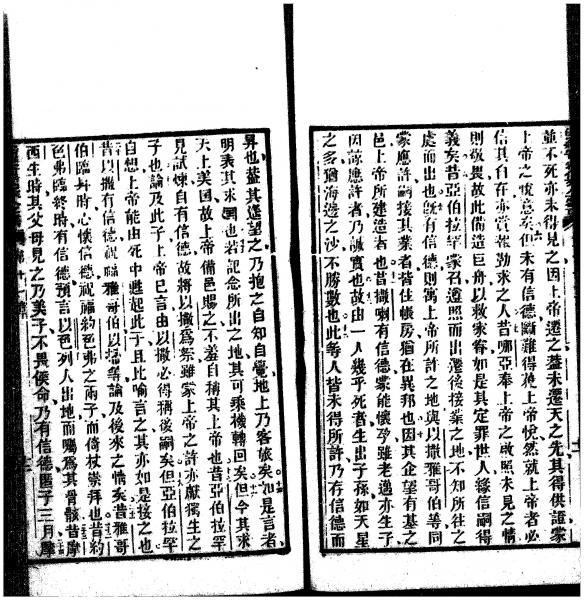 並不死亦未得見之因上帝遷之蓋未遷天之先其得供證蒙
上帝之悅意矣但未有信德斷難得獲上帝悅然就上帝者必
信其自在亦賞報勤求之人昔哪亞奉上帝之啟照未見之情
則敬畏故此備造巨舟以救家眷如是其定罪世人緣信嗣得
義矣昔亞伯拉罕蒙召遵照而出遷後接業之地不知所往之
處而出也既有信德則寓上帝所許之地與以撒雅哥伯等同
蒙應許嗣接其業者皆住帳房猶在異邦也因其企望有基之
邑上帝所建造者也昔撒喇有信德蒙能懷孕雖老邁亦生子
因諒應許者乃誠實也故由一人幾乎死者生出子孫如天星
之多猶海邊之沙不勝數也此等人皆未得所許乃存信德而
昇也蓋其遙望之乃抱之自知自覺地上乃客旅矣如是言者
明表其求國也若記念所出之地其可乘機轉回矣但今其求
天上美國故上帝備邑賜之不羞自稱其上帝也昔亞伯拉罕
見試煉自有信德故將以撒為祭雖蒙上帝之許亦獻獨生之
子也論及此子上帝已言由以撒必得稱後嗣矣但亞伯拉罕
自想上帝能由死中甦起此子且比喻言之其亦如是接之也
昔以撒有信德祝雅哥伯以掃等論及後來之情矣昔雅哥
伯臨毋時心懷信德祝福約色弗之兩子而倚杖崇拜也昔約
色弗臨終時有信德預言以色列人出地而囑為其骨骸昔摩
西生時其父母見之乃美子不畏候命乃有信德匿子三月摩